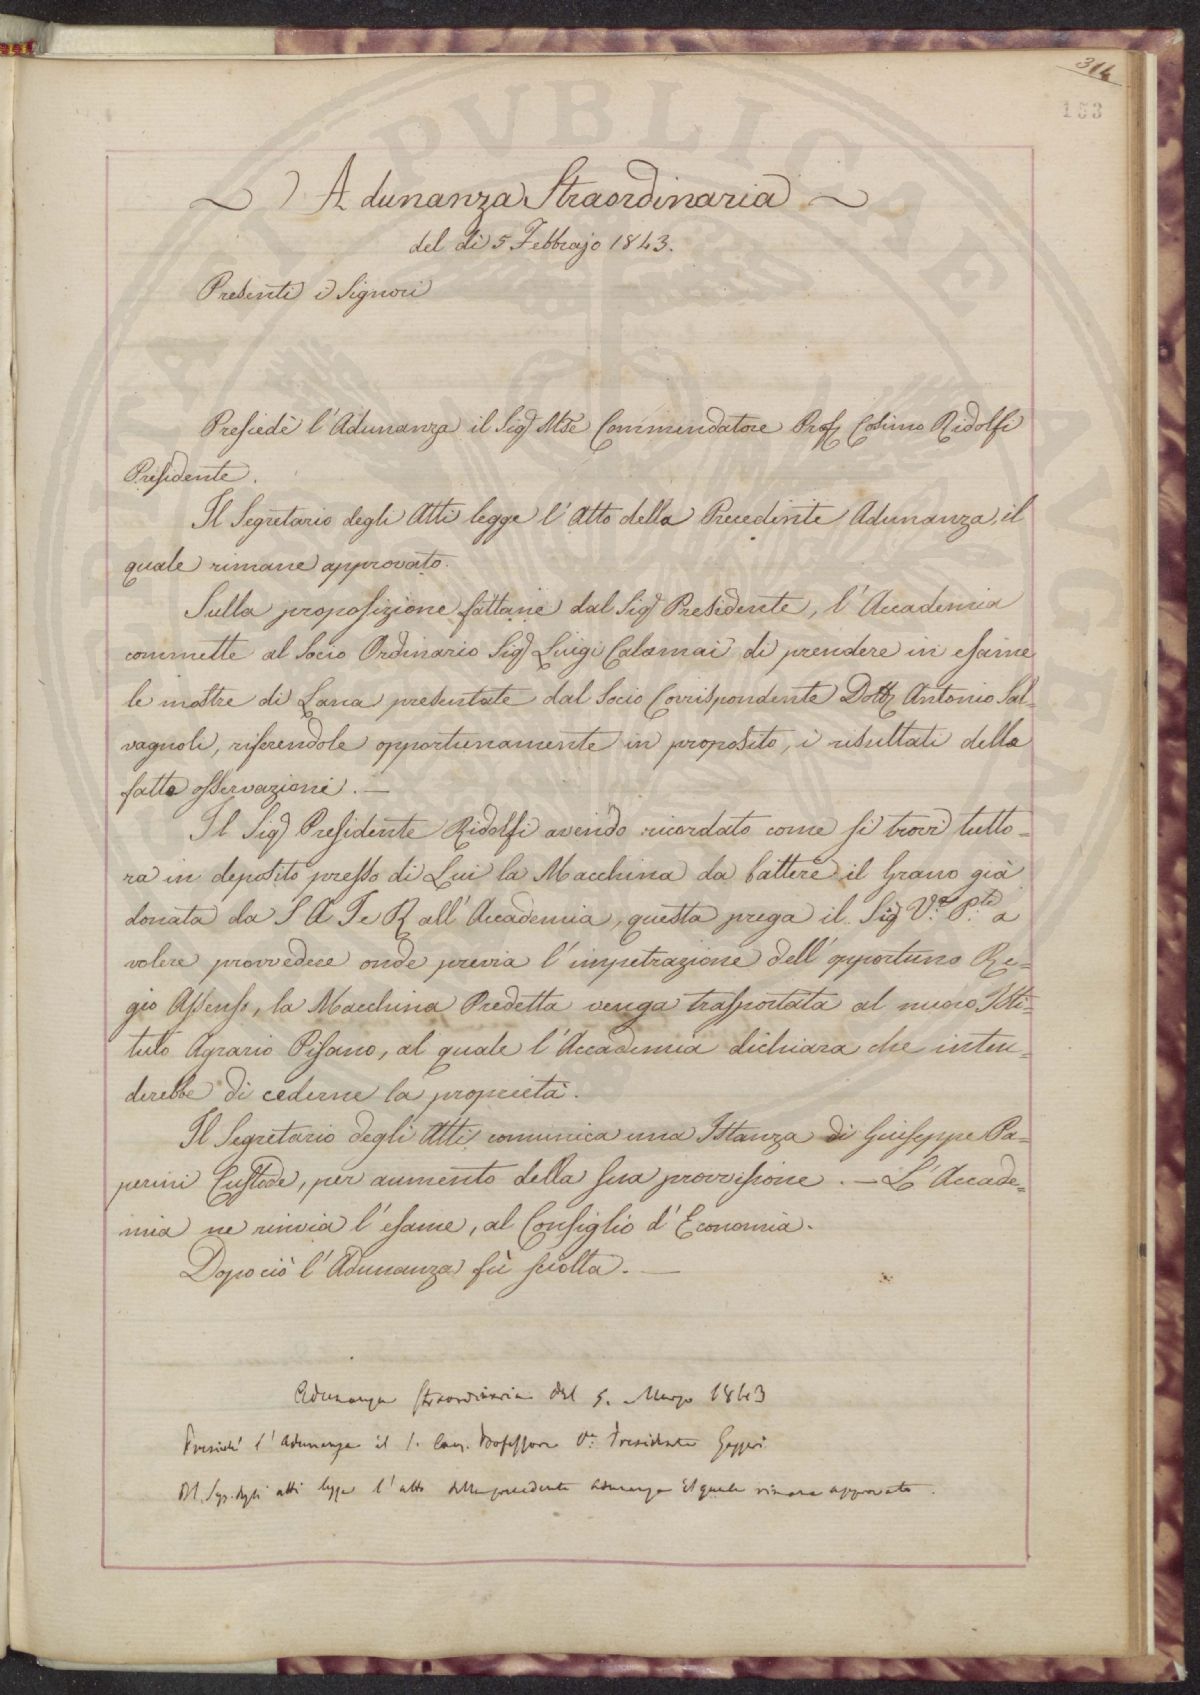 314
153
Adunanza Straordinaria
del dì 5 Febbrajo 1843.
Presenti i Signori
Presiedè l'Adunanza il Sigr Mse Commendatore Prof Cosimo Ridolfi
Presidente.
Il Segretario degli Atti legge l'Atto della Precedente Adunanza, il
quale rimane approvato.
Sulla proposizione fattane dal Sigr Presidente, l'Accademia
commette al Socio Ordinario Sigr Luigi Calamai di prendere in esame
le mostre di Lana presentate dal Socio Corrispondente Dottr Antonio Sal=
vagnoli, riferendole opportunamente in proposito, i resultati della
fatta osservazioni. —
Il Sigr Presidente Ridolfi avendo ricordato come si trovi tutto=
ra in deposito presso di Lui la Macchina da battere il Grano già
donata da S A I e R all'Accademia, questa prega il Sigr Ve. Pte. a
volere provvedere onde previa l'impetrazione dell'opportuno Re=
gio Assenso, la Macchina Predetta venga trasportata al nuovo Isti=
tuto Agrario Pisano, al quale l'Accademia dichiara che inten=
derebbe di cederne la proprietà.
Il Segretario degli Atti comunica una Istanza di Giuseppe Pa=
perini Custode, per aumento della sua provvisione. — L'Accade=
mia ne rinvia l'esame, al Consiglio d'Economia.
Dopo ciò l'Adunanza fù sciolta. —
Adunanza straordinaria del 5. Marzo 1843
Presiedé l'adunanza il S. Cav. Professore Ve. Presidente Gazzeri
Il Seg. degli atti legge l'atto della precedente adunanza il quale rimane approvato.